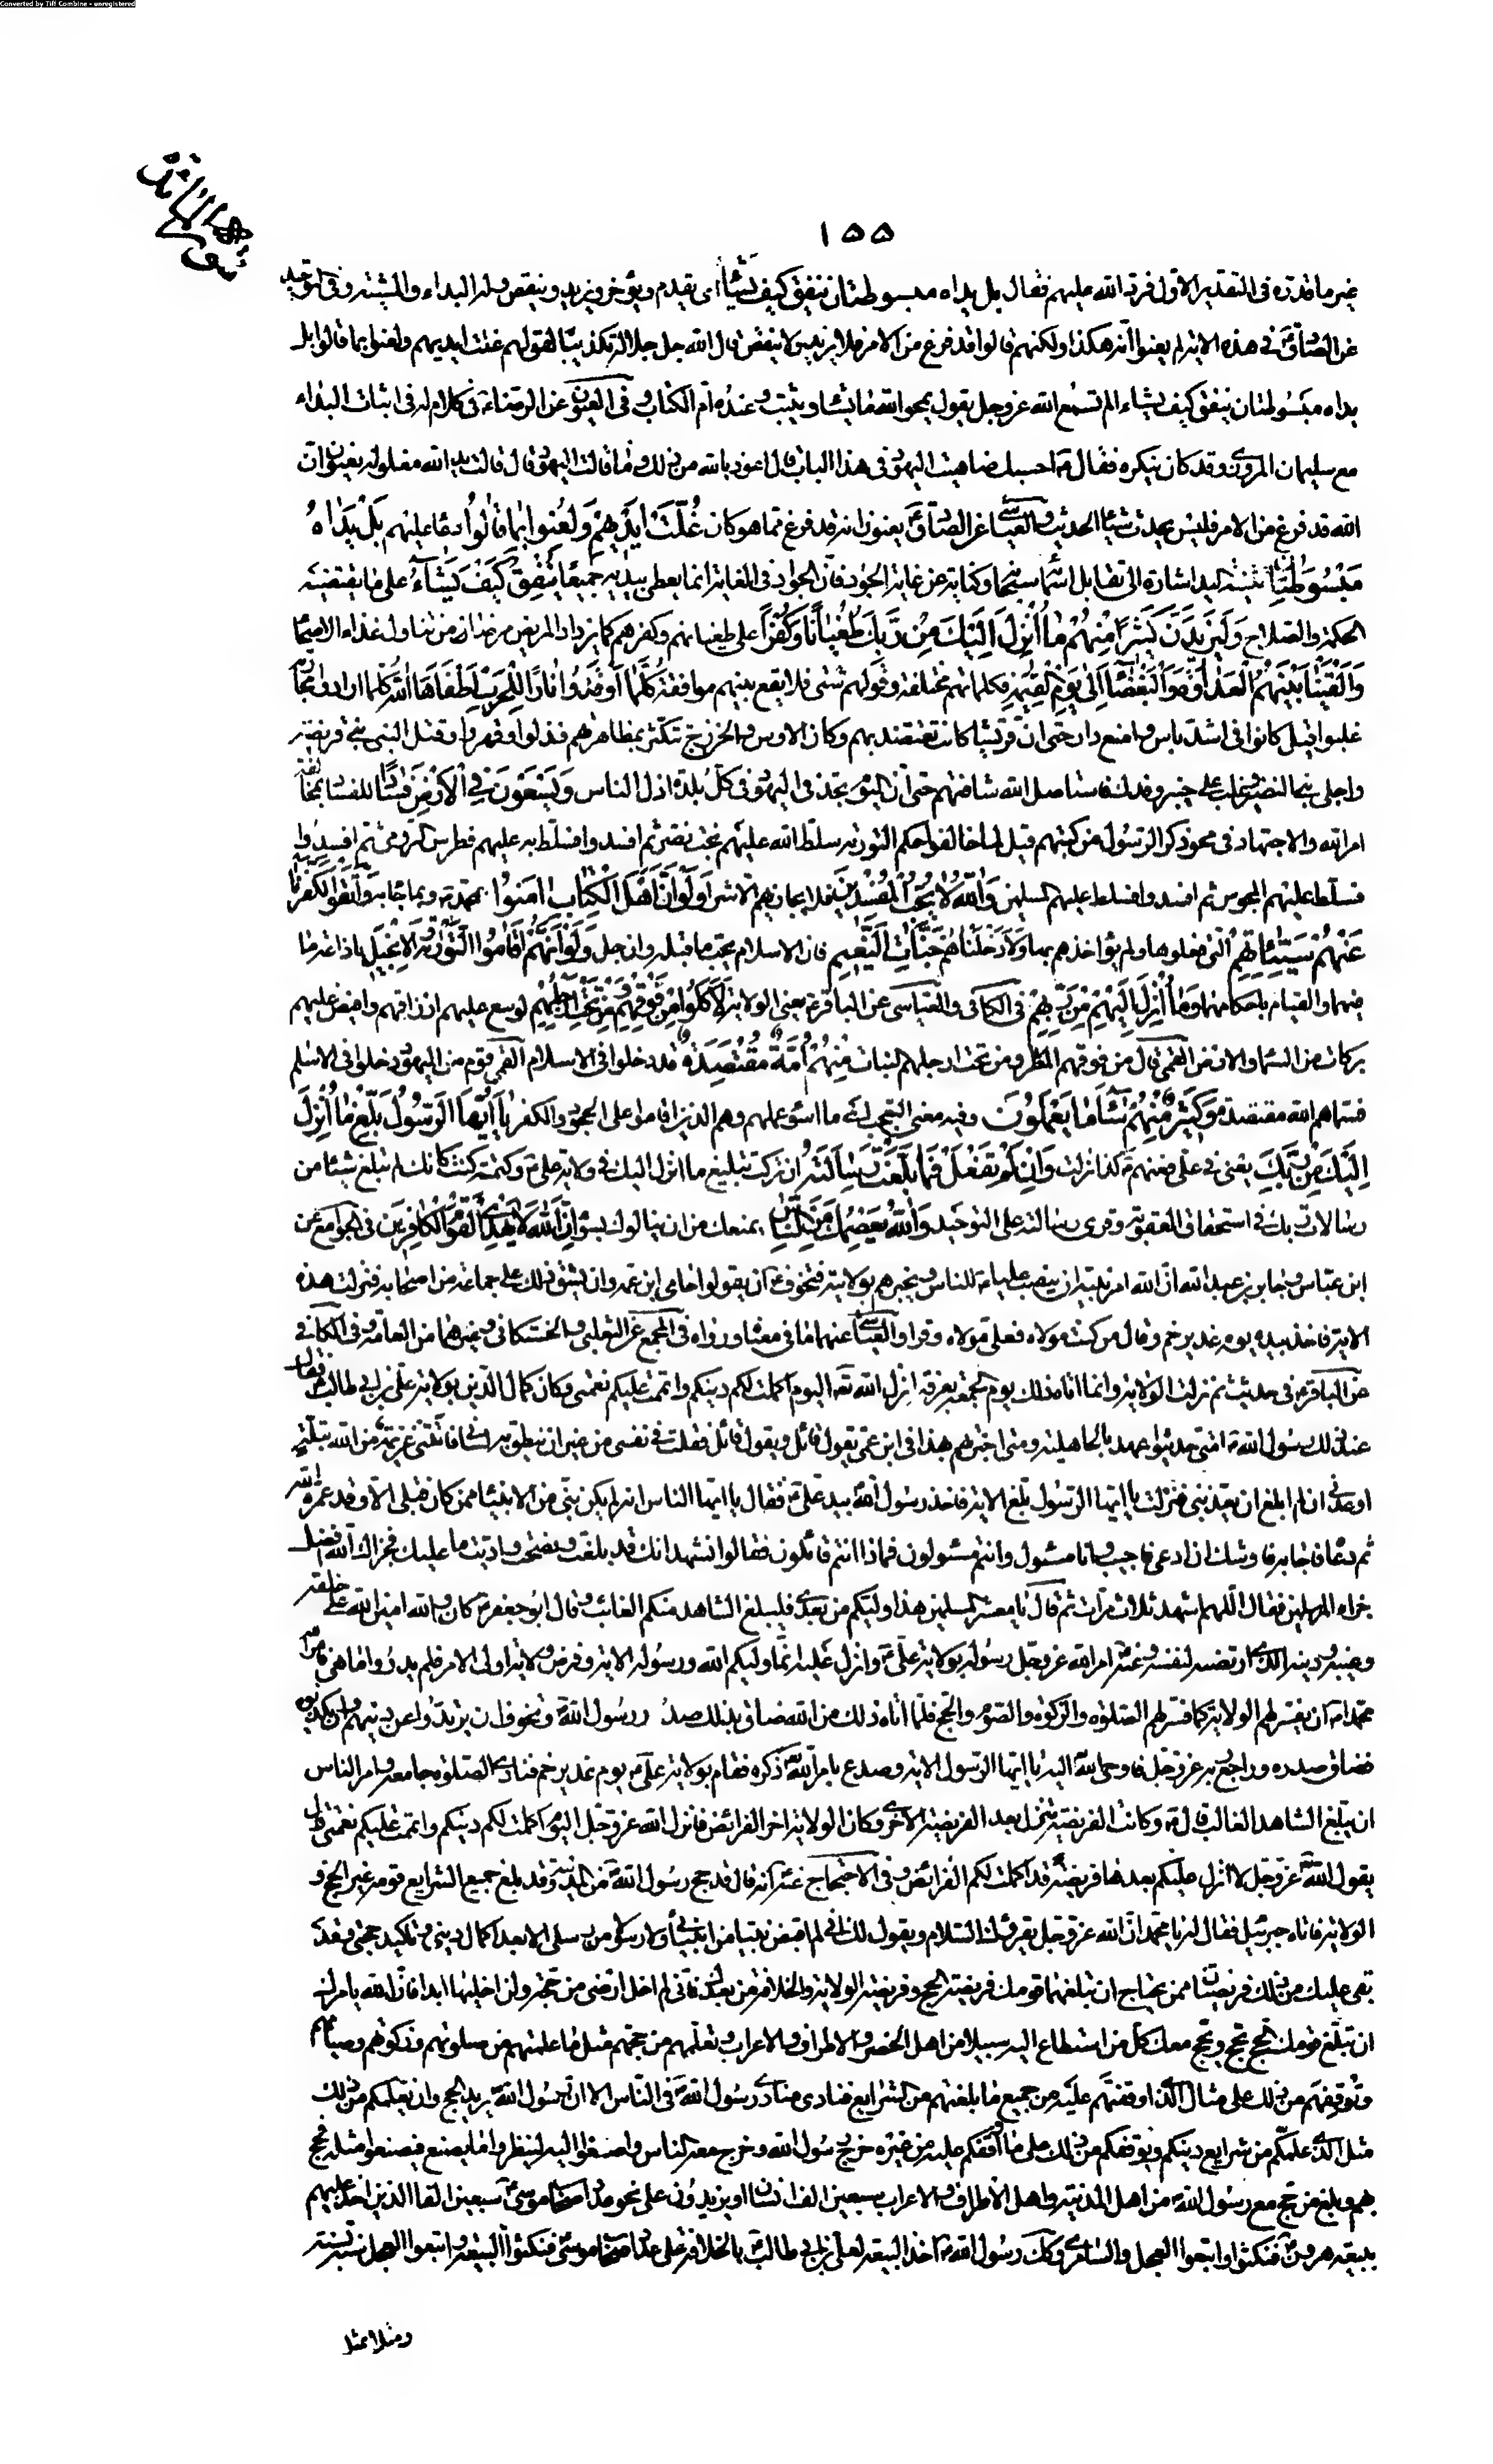 Converted by Tiff Combine - unregistered
١٥٥
سورة المائدة
غير ما قدره في التقدير الأول فرد الله عليهم فقال بل يداه مبسوطتان ينفق كيف يشاء أي يقدم ويؤخر ويزيد وينقص وله البداء والمشية وفي التوحيد
عن الصادق في هذه الآية لم يعنوا أنه هكذا ولكنهم قالوا قد فرغ من الأمر فلا يزيد ولا ينقص قال الله جل جلاله تكذيبا لقولهم غلت أيديهم ولعنوا بما قالوا بل
يداه مبسوطتان ينفق كيف يشاء ألم تسمع الله عز وجل يقول يمحو الله ما يشاء ويثبت وعنده أم الكتاب وفي العيون عن الرضا ع في كلام له في إثبات البداء
مع سليمان المروزي وقد كان ينكره فقال ع أحسبك ضاهيت اليهود في هذا الباب قال أعوذ بالله من ذلك وما قالت اليهود قال قالت يد الله مغلولة يعنون أن
الله قد فرغ من الأمر فليس يحدث شيئا الحديث والعياشي عن الصادق يعنون أنه قد فرغ مما هو كان غُلَّتْ أَيْدِيهِمْ وَلُعِنُوا بِمَا قَالُوا دعاء عليهم بَلْ يَدَاهُ
مَبْسُوطَتَانِ تثنية اليد إشارة إلى تقابل أسمائه سبحانه وكناية عن غاية الجود فإن الجواد في الغاية إنما يعطي بيديه جميعا يُنْفِقُ كَيْفَ يَشَاءُ على ما يقتضيه
الحكمة والصلاح وَلَيَزِيدَنَّ كَثِيرًا مِنْهُمْ مَا أُنْزِلَ إِلَيْكَ مِنْ رَبِّكَ طُغْيَانًا وَكُفْرًا على طغيانهم وكفرهم كما يزداد المريض مرضا من تناول غذاء الأصحاء
وَأَلْقَيْنَا بَيْنَهُمُ الْعَدَاوَةَ وَالْبَغْضَاءَ إِلَى يَوْمِ الْقِيمَةِ فكلماتهم مختلفة وقولهم شتى فلا يقع بينهم موافقة كُلَّمَا أَوْقَدُوا نَارًا لِلْحَرْبِ أَطْفَأَهَا اللَّهُ كلما أرادوا محاربة
غلبوا قيل كانوا في أشد بأس وأمنع دار حتى أن قريشا كانت تعتضد بهم وكان الأوس والخزرج تتكثر بمظاهرتهم فذلوا وقهروا وقتل النبي بني قريظة
وأجلى بني النضير وغلب على خيبر وفدك فاستأصل الله شأفتهم حتى أن اليوم تجد في اليهود في كل بلدة أذل الناس وَيَسْعَوْنَ فِي الْأَرْضِ فَسَادًا للفساد بمخالفة
أمر الله والاجتهاد في محو ذكر الرسول من كتبهم قيل لما خالفوا حكم التورية سلط الله عليهم بخت نصر ثم أفسدوا فسلط به عليهم فطرس الرومي ثم أفسدوا
فسلط عليهم المجوس ثم أفسدوا فسلط عليهم المسلمين وَاللَّهُ لَا يُحِبُّ الْمُفْسِدِينَ فلا يجازيهم إلا شرا وَلَوْ أَنَّ أَهْلَ الْكِتَابِ آمَنُوا بمحمد ص وبما جاء به وَاتَّقَوْا لَكَفَّرْنَا
عَنْهُمْ سَيِّئَاتِهِمْ التي فعلوها ولم يؤاخذهم بها وَلَأَدْخَلْنَاهُمْ جَنَّاتِ النَّعِيمِ فإن الإسلام يجب ما قبله وإن جل وَلَوْ أَنَّهُمْ أَقَامُوا التَّوْرِيةَ وَالْإِنْجِيلَ بإذاعة ما
فيهما والقيام بأحكامهما وَمَا أُنْزِلَ إِلَيْهِمْ مِنْ رَبِّهِمْ في الكافي والعياشي عن الباقر ع يعني الولاية لَأَكَلُوا مِنْ فَوْقِهِمْ وَمِنْ تَحْتِ أَرْجُلِهِمْ لوسع عليهم أرزاقهم وأفيض عليهم
بركات من السماء والأرض القمي قال من فوقهم المطر ومن تحت أرجلهم النبات مِنْهُمْ أُمَّةٌ مُقْتَصِدَةٌ قد دخلوا في الإسلام القمي قوم من اليهود دخلوا في الإسلام
فسماهم الله مقتصدة وَكَثِيرٌ مِنْهُمْ سَاءَ مَا يَعْمَلُونَ وفيه معنى التعجب أي ما أسوء عملهم وهم الذين أقاموا على الجحود والكفر يَا أَيُّهَا الرَّسُولُ بَلِّغْ مَا أُنْزِلَ
إِلَيْكَ مِنْ رَبِّكَ يعني في علي فعنهم ع كذا نزلت وَإِنْ لَمْ تَفْعَلْ فَمَا بَلَّغْتَ رِسَالَتَهُ إن تركت تبليغ ما أنزل إليك في ولاية علي ع وكتمته كنت كأنك لم تبلغ شيئا من
رسالات ربك في استحقاق العقوبة وقرئ رسالته على التوحيد وَاللَّهُ يَعْصِمُكَ مِنَ النَّاسِ يمنعك من أن ينالوك بسوء إِنَّ اللَّهَ لَا يَهْدِي الْقَوْمَ الْكَافِرِينَ في الجوامع عن
ابن عباس وجابر بن عبد الله أن الله أمر نبيه أن ينصب عليا ع للناس ويخبرهم بولايته فتخوف ع أن يقولوا حامى ابن عمه وأن يشق ذلك على جماعة من أصحابه فنزلت هذه
الآية فأخذ بيده يوم غدير خم وقال من كنت مولاه فعلي مولاه وقرأ والعياشي عنهما ما في معناه ورواه في المجمع عن الثعلبي والحسكاني وغيرهما من العامة وفي الكافي
عن الباقر ع في حديث ثم نزلت الولاية وإنما أتاه ذلك يوم الجمعة بعرفة أنزل الله تعالى اليوم أكملت لكم دينكم وأتممت عليكم نعمتي وكان كمال الدين بولاية علي بن أبي طالب ع فقال
عند ذلك رسول الله ص أمتي حديثوا عهد بالجاهلية ومتى أخبرهم بهذا في ابن عمي يقول قائل ويقول قائل فقلت في نفسي من غير أن ينطق به لساني فأتتني عزيمة من الله بتلة
أوعدني إن لم أبلغ أن يعذبني فنزلت يا أيها الرسول بلغ الآية فأخذ رسول الله بيد علي ع فقال يا أيها الناس إنه لم يكن نبي من الأنبياء ممن كان قبلي إلا وقد عمره الله
ثم دعاه فأجابه فأوشك أن أدعى فأجيب وأنا مسئول وأنتم مسئولون فماذا أنتم قائلون فقالوا نشهد أنك قد بلغت ونصحت وأديت ما عليك فجزاك الله أفضل
جزاء المرسلين فقال اللهم اشهد ثلاث مرات ثم قال يا معشر المسلمين هذا وليكم من بعدي فليبلغ الشاهد منكم الغائب وقال أبو جعفر ع كان والله أمين الله على خلقه
وغيبه ودينه الذي ارتضيه لنفسه وعنه ع أمر الله عز وجل رسوله بولاية علي ع وأنزل عليه إنما وليكم الله ورسوله الآية وفرض ولاية أولي الأمر فلم يدروا ما هي فأمر الله
محمدا ص أن يفسر لهم الولاية كما فسر لهم الصلوة والزكوة والصوم والحج فلما أتاه ذلك من الله ضاق بذلك صدر رسول الله وتخوف أن يرتدوا عن دينهم وأن يكذبوه
فضاق صدره وراجع ربه عز وجل فأوحى الله إليه يا أيها الرسول الآية وصدع بأمر الله تعالى ذكره فقام بولاية علي ع يوم غدير خم فنادى الصلوة جامعة وأمر الناس
أن يبلغ الشاهد الغائب قال ع وكانت الفريضة تنزل بعد الفريضة الأخرى وكان الولاية آخر الفرائض فأنزل الله عز وجل اليوم أكملت لكم دينكم وأتممت عليكم نعمتي قال
يقول الله عز وجل لا أنزل عليكم بعدها فريضة قد أكملت لكم الفرائض وفي الاحتجاج عنه ع أنه قال قد حج رسول الله ص من المدينة وقد بلغ جميع الشرايع قومه غير الحج و
الولاية فأتاه جبرئيل فقال له يا محمد إن الله عز وجل يقرؤك السلام ويقول لك إني لم أقبض نبيا من أنبيائي ولا رسولا من رسلي إلا بعد إكمال ديني وتأكيد حجتي وقد
بقي عليك من ذلك فريضتان مما يحتاج أن تبلغهما قومك فريضة الحج وفريضة الولاية والخلافة من بعدك فإني لم أخل أرضي من حجة ولن أخليها أبدا فإن الله يأمرك
أن تبلغ قومك الحج تحج ويحج معك كل من استطاع إليه سبيلا من أهل الحضر والأطراف والأعراب وتعلمهم من حجهم مثل ما علمتهم من صلوتهم وزكوتهم وصيامهم
وتوقفهم من ذلك على مثال الذي أوقفتهم عليه من جميع ما بلغتهم من الشرايع فنادى منادي رسول الله ص في الناس ألا إن رسول الله يريد الحج وأن يعلمكم من ذلك
مثل الذي علمكم من شرايع دينكم ويوقفكم من ذلك على ما أوقفكم عليه من غيره خرج رسول الله وخرج معه الناس وأصغوا إليه لينظروا ما يصنع فيصنعوا مثله فحج
بهم وبلغ من حج مع رسول الله ص من أهل المدينة وأهل الأطراف والأعراب سبعين ألف إنسان أو يزيدون على نحو عدد أصحاب موسى ع سبعين ألفا الذين أخذ عليهم
بيعة هرون ع فنكثوا واتبعوا العجل والسامري وكذلك رسول الله ص أخذ البيعة لعلي بن أبي طالب ع بالخلافة على عدد أصحاب موسى فنكثوا البيعة واتبعوا العجل سنة بسنة
ومثلا بمثل